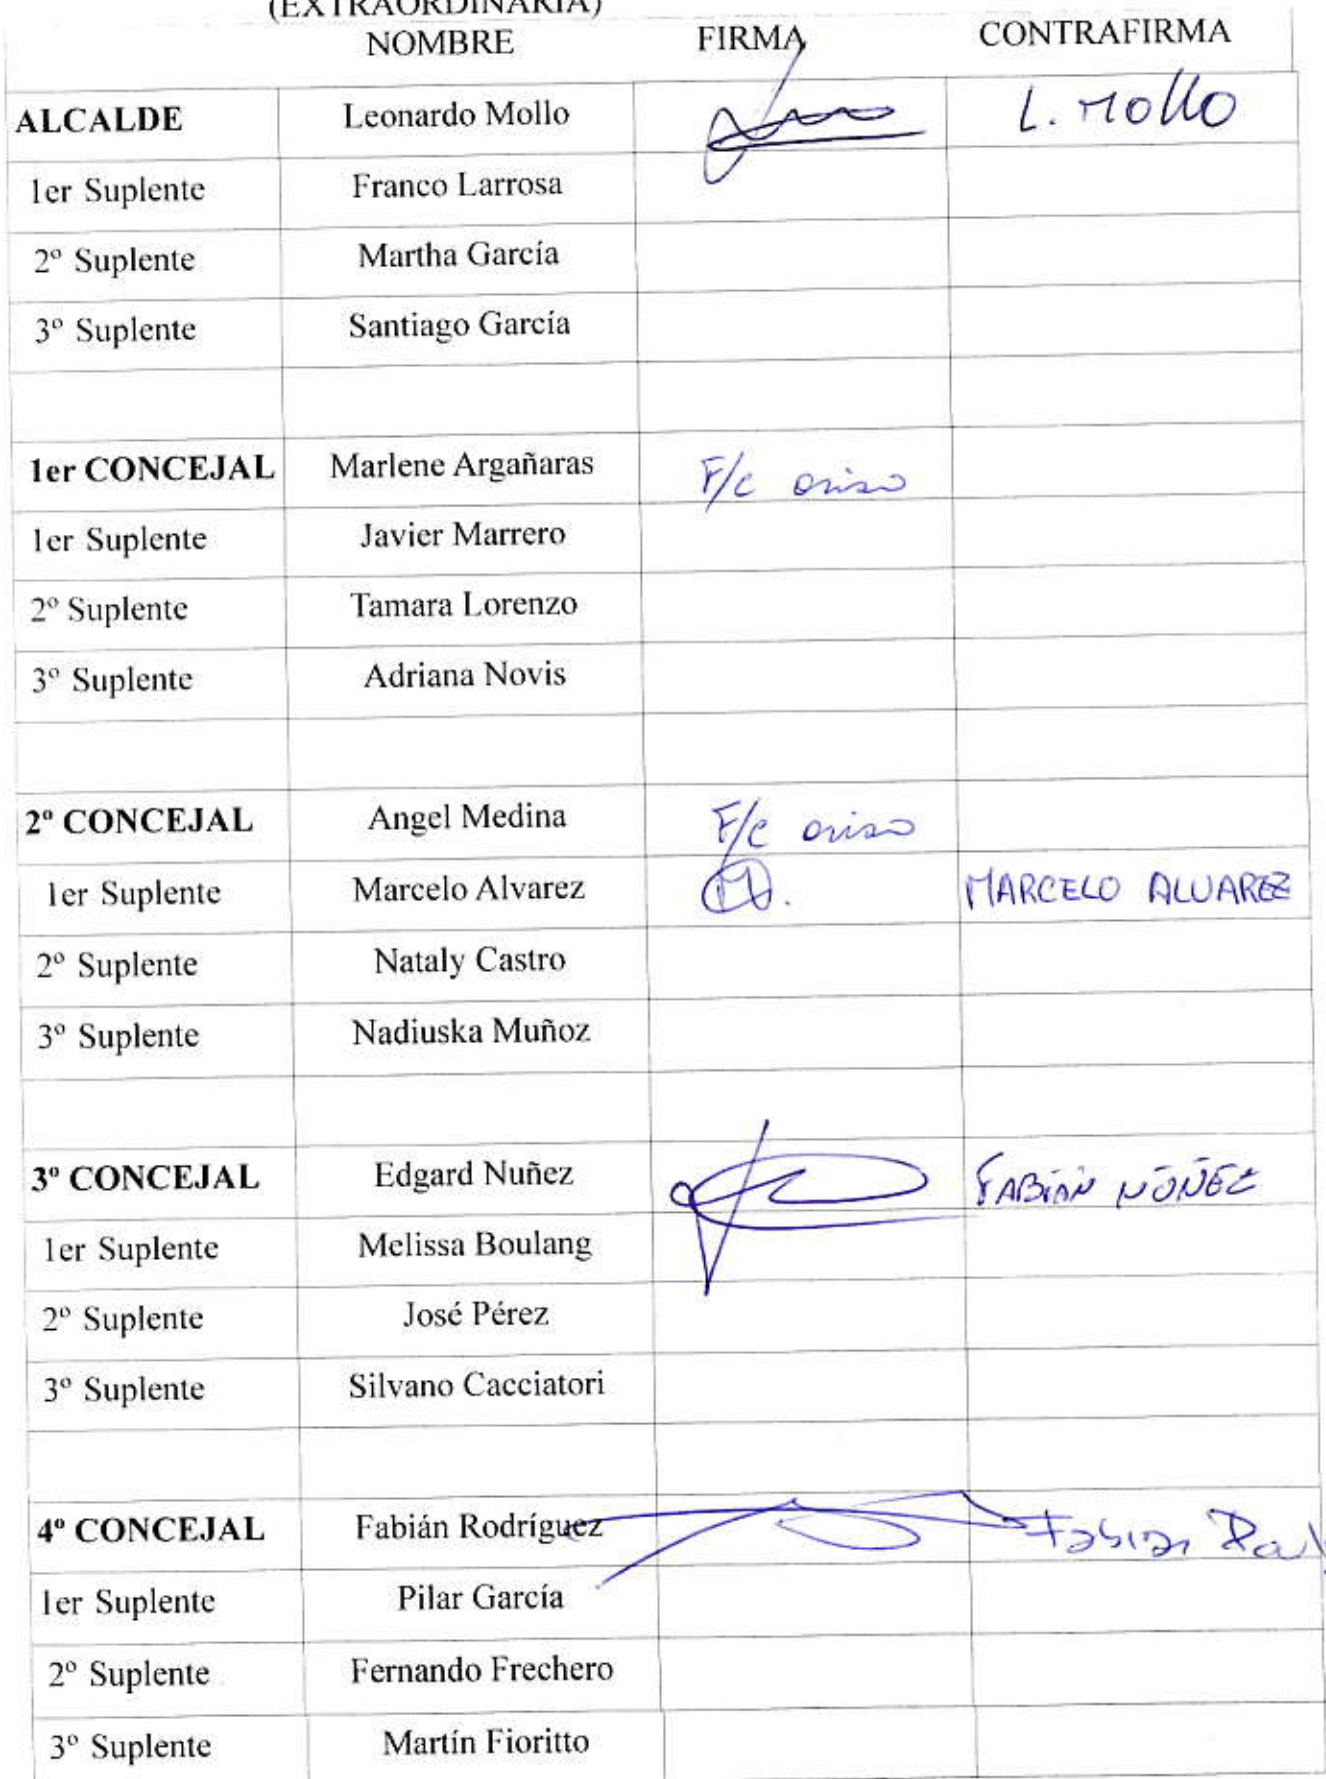 (EXTRAORDINARIA)
NOMBRE FIRMA CONTRAFIRMA
ALCALDE Leonardo Mollo L. Mollo
1er Suplente Franco Larrosa
2º Suplente Martha García
3º Suplente Santiago García
1er CONCEJAL Marlene Argañaras F/c aviso
1er Suplente Javier Marrero
2º Suplente Tamara Lorenzo
3º Suplente Adriana Novis
2º CONCEJAL Angel Medina F/c aviso
1er Suplente Marcelo Alvarez MARCELO ALVAREZ
2º Suplente Nataly Castro
3º Suplente Nadiuska Muñoz
3º CONCEJAL Edgard Nuñez FABIÁN NÚÑEZ
1er Suplente Melissa Boulang
2º Suplente José Pérez
3º Suplente Silvano Cacciatori
4º CONCEJAL Fabián Rodríguez Fabian
1er Suplente Pilar García
2º Suplente Fernando Frechero
3º Suplente Martín Fioritto